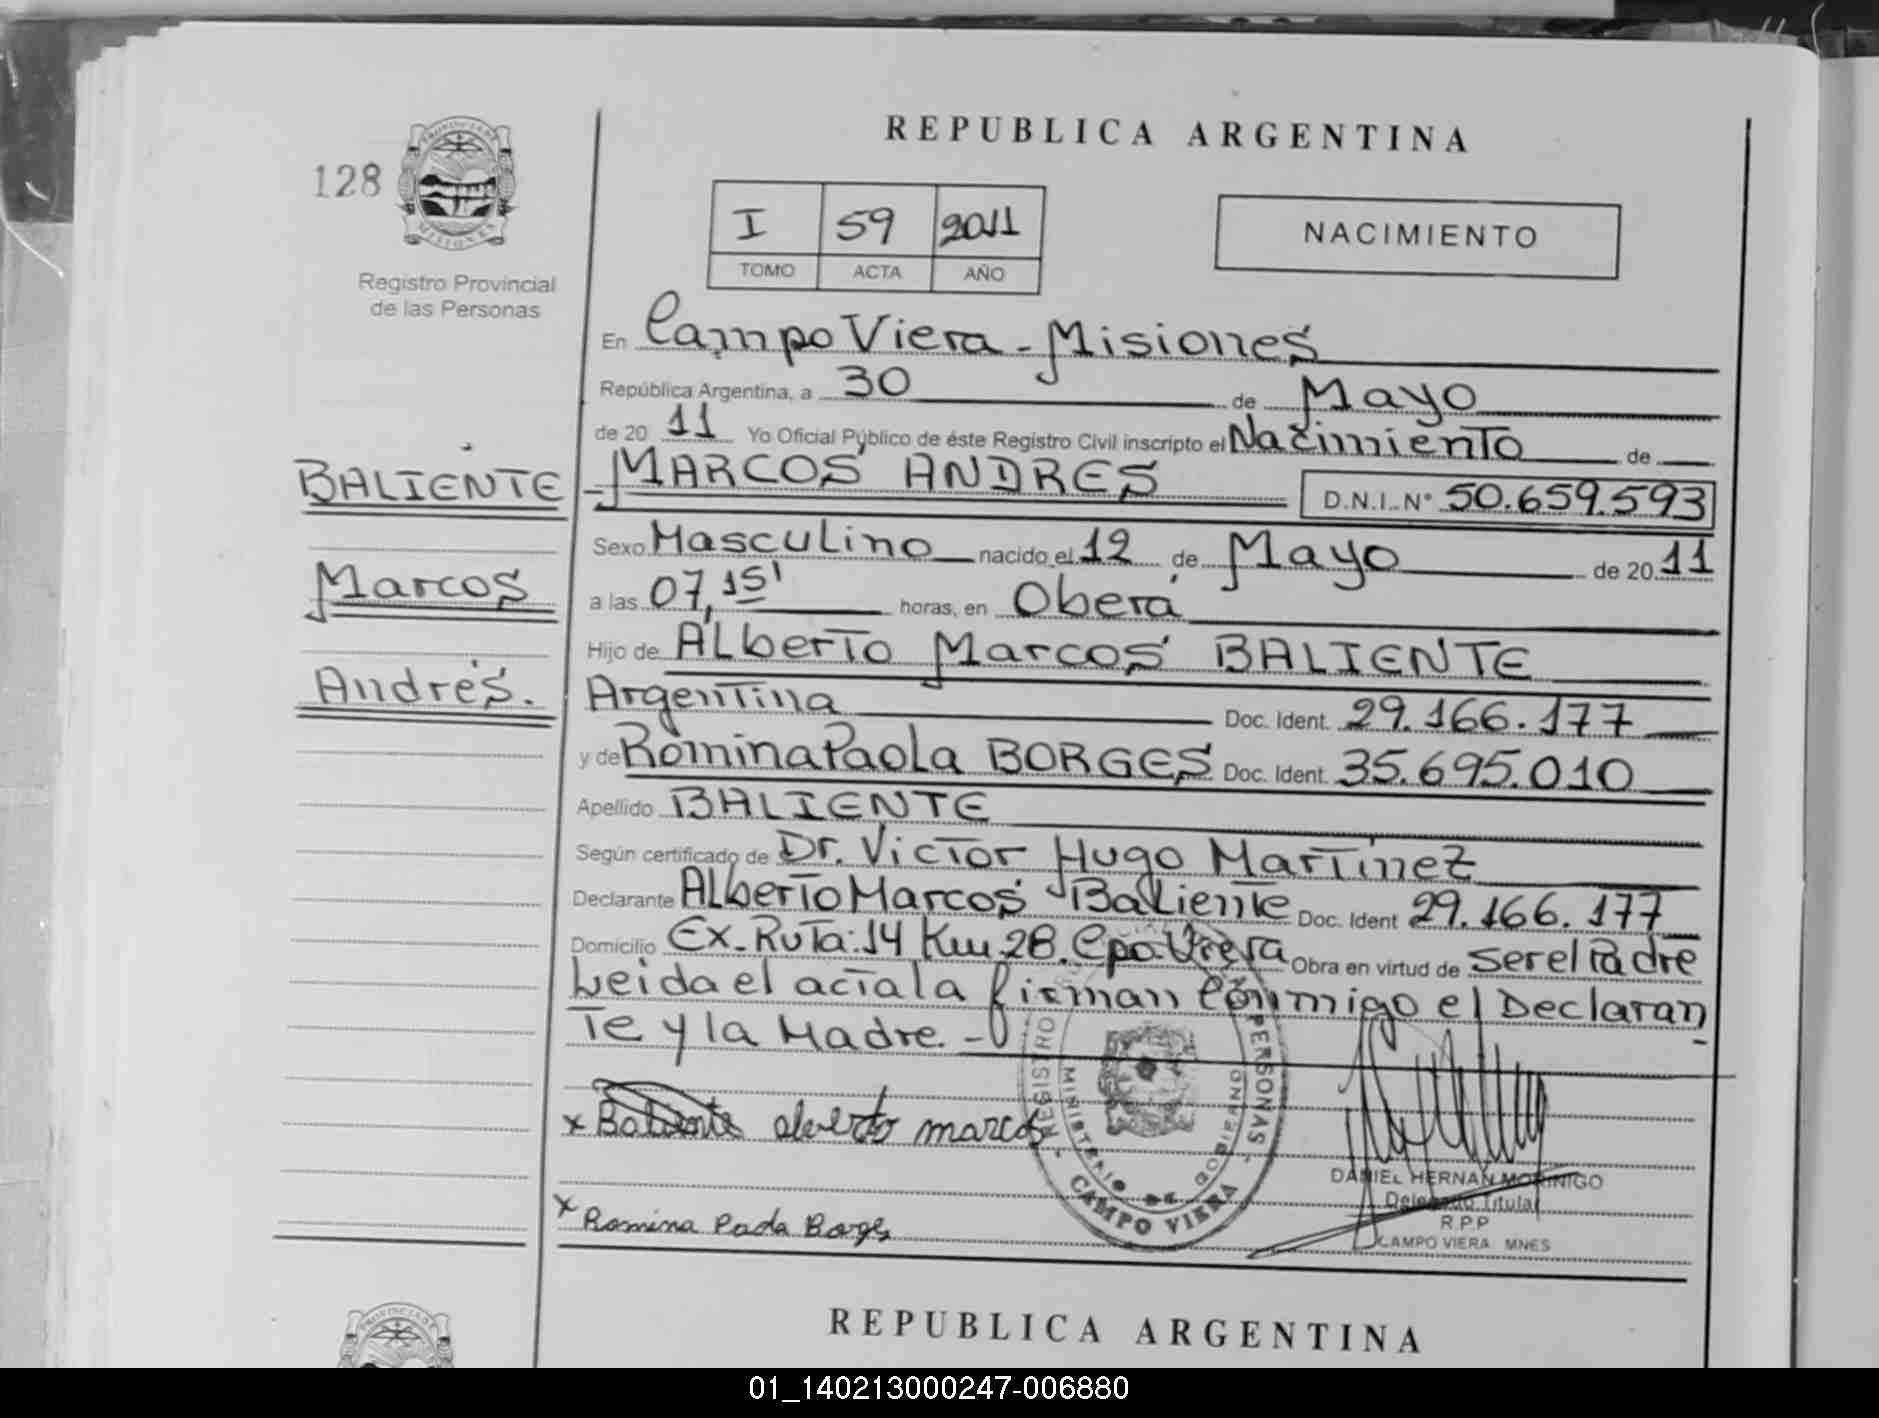 REPUBLICA ARGENTINA
128
PROVINCIA DE
MISIONES
Registro Provincial
de las Personas
I 59 2011
TOMO ACTA AÑO
NACIMIENTO
En Campo Viera - Misiones
República Argentina, a 30 de Mayo
de 20 11 Yo Oficial Público de éste Registro Civil inscripto el Nacimiento de
BALIENTE
MARCOS ANDRES D.N.I. N° 50.659.593
Sexo Masculino nacido el 12 de Mayo de 20 11
Marcos
a las 07,15' horas, en Oberá
Hijo de ALberTo Marcos BALIENTE
Andrés.
Argentina Doc. Ident. 29.166.177
y de Romina PaoLa BORGES Doc. Ident. 35.695.010
Apellido BALIENTE
Según certificado de Dr. Victor Hugo Martinez
Declarante ALberto Marcos Baliente Doc. Ident 29.166.177
Domicilio Ex. Ruta: 14 Km 28. Cpo. Viera Obra en virtud de ser el Padre
Leida el acta la firman conmigo el Declaran
te y la Madre. -
x Baliente alverto marcos
x Romina Paola Borges
REGISTRO PERSONAS
MINISTERIO DE GOBIERNO
- CAMPO VIERA -
DANIEL HERNAN MORINIGO
Delegado Titular
R.P.P
CAMPO VIERA MNES
REPUBLICA ARGENTINA
01_140213000247-006880